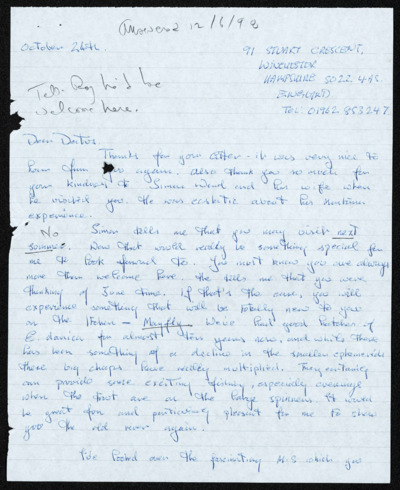 Answered 12/6/98
October 26th.
91 STUART CRESCENT,
WINCHESTER
HAMPSHIRE SO22 4AS.
ENGLAND.
TEL: 01962 853247
Tell Roy he'd be
welcome here.
Dear Datus,
Thanks for your letter - it was very nice to
hear from you again. Also thank you so much for
your kindness to Simon Ward and his wife when
he visited you. He was ecstatic about his
experience.
No Simon tells me that you may visit next
summer. Now that would really be something special for
me to look forward to. You must know you are always
more than welcome here. He tells me that you were
thinking of June time. If that's the case, you will
experience something that will be totally new to you
on the Itchen - Mayfly. We've had good hatches of
E. danica for almost ten years now, and while there
has been something of a decline in the smaller ephemerids
these big chaps have really multiplied. They certainly
can provide some exciting fishing, especially evenings
when the trout are on the large spinners. It would
be great fun and particularly pleasant for me to show
you the old river again.
I've looked over the fascinating M.S which you